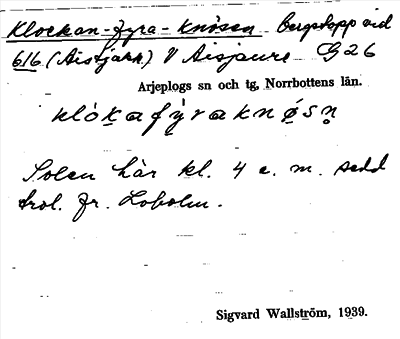 Klockan-fyra-knösen. Bergstopp vid
616 (Aistjákk) V Aisjaure G 26
Arjeplogs sn och tg, Norrbottens län.
klókafỳraknø̀sn̥
Solen här kl. 4 e. m. sedd
trol. fr. Loholm.
Sigvard Wallström, 1939.